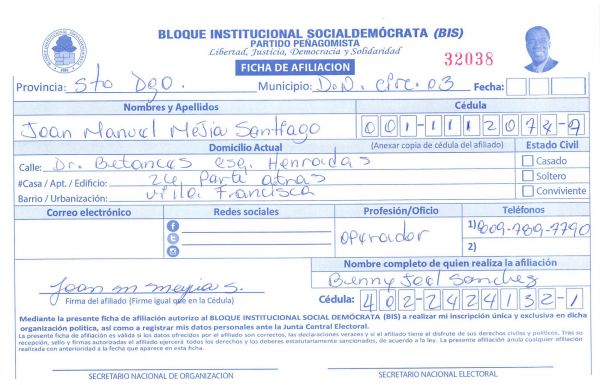 BLOQUE INSTITUCIONAL SOCIALDEMÓCRATA (BIS)
PARTIDO PEÑAGOMISTA
Libertad, Justicia, Democracia y Solidaridad
FICHA DE AFILIACION
32038
Provincia: Sto Dgo. Municipio: D.N. Circ. 03 Fecha:
Nombres y Apellidos Cédula
Joan Manuel Mejia Santiago 001-1112078-9
Domicilio Actual (Anexar copia de cédula del afiliado) Estado Civil
Calle: Dr. Betances esq. Henradas
#Casa / Apt. / Edificio: 26 Parte atras
Barrio / Urbanización: Villa Francisca
Casado
Soltero
Conviviente
Correo electrónico Redes sociales Profesión/Oficio Teléfonos
operador
1) 809-789-7790
2)
Nombre completo de quien realiza la afiliación
Joan m mejia s. Benny Joel Sanchez
Firma del afiliado (Firme igual que en la Cédula)
Cédula: 402-2424132-1
Mediante la presente ficha de afiliación autorizo al BLOQUE INSTITUCIONAL SOCIAL DEMÓCRATA (BIS) a realizar mi inscripción única y exclusiva en dicha
organización política, así como a registrar mis datos personales ante la Junta Central Electoral.
La presente ficha de afiliación es válida si los datos ofrecidos por el afiliado son correctos, las declaraciones veraces y si el afiliado tiene el disfrute de sus derechos civiles y políticos. Tras su
recepción, sello y firmas autorizadas el afiliado ejercerá todos los derechos y los deberes estatutariamente sancionados, de acuerdo a la ley. La presente afiliación anula cualquier afiliación
realizada con anterioridad a la fecha que aparece en esta ficha.
SECRETARIO NACIONAL DE ORGANIZACIÓN SECRETARIO NACIONAL ELECTORAL